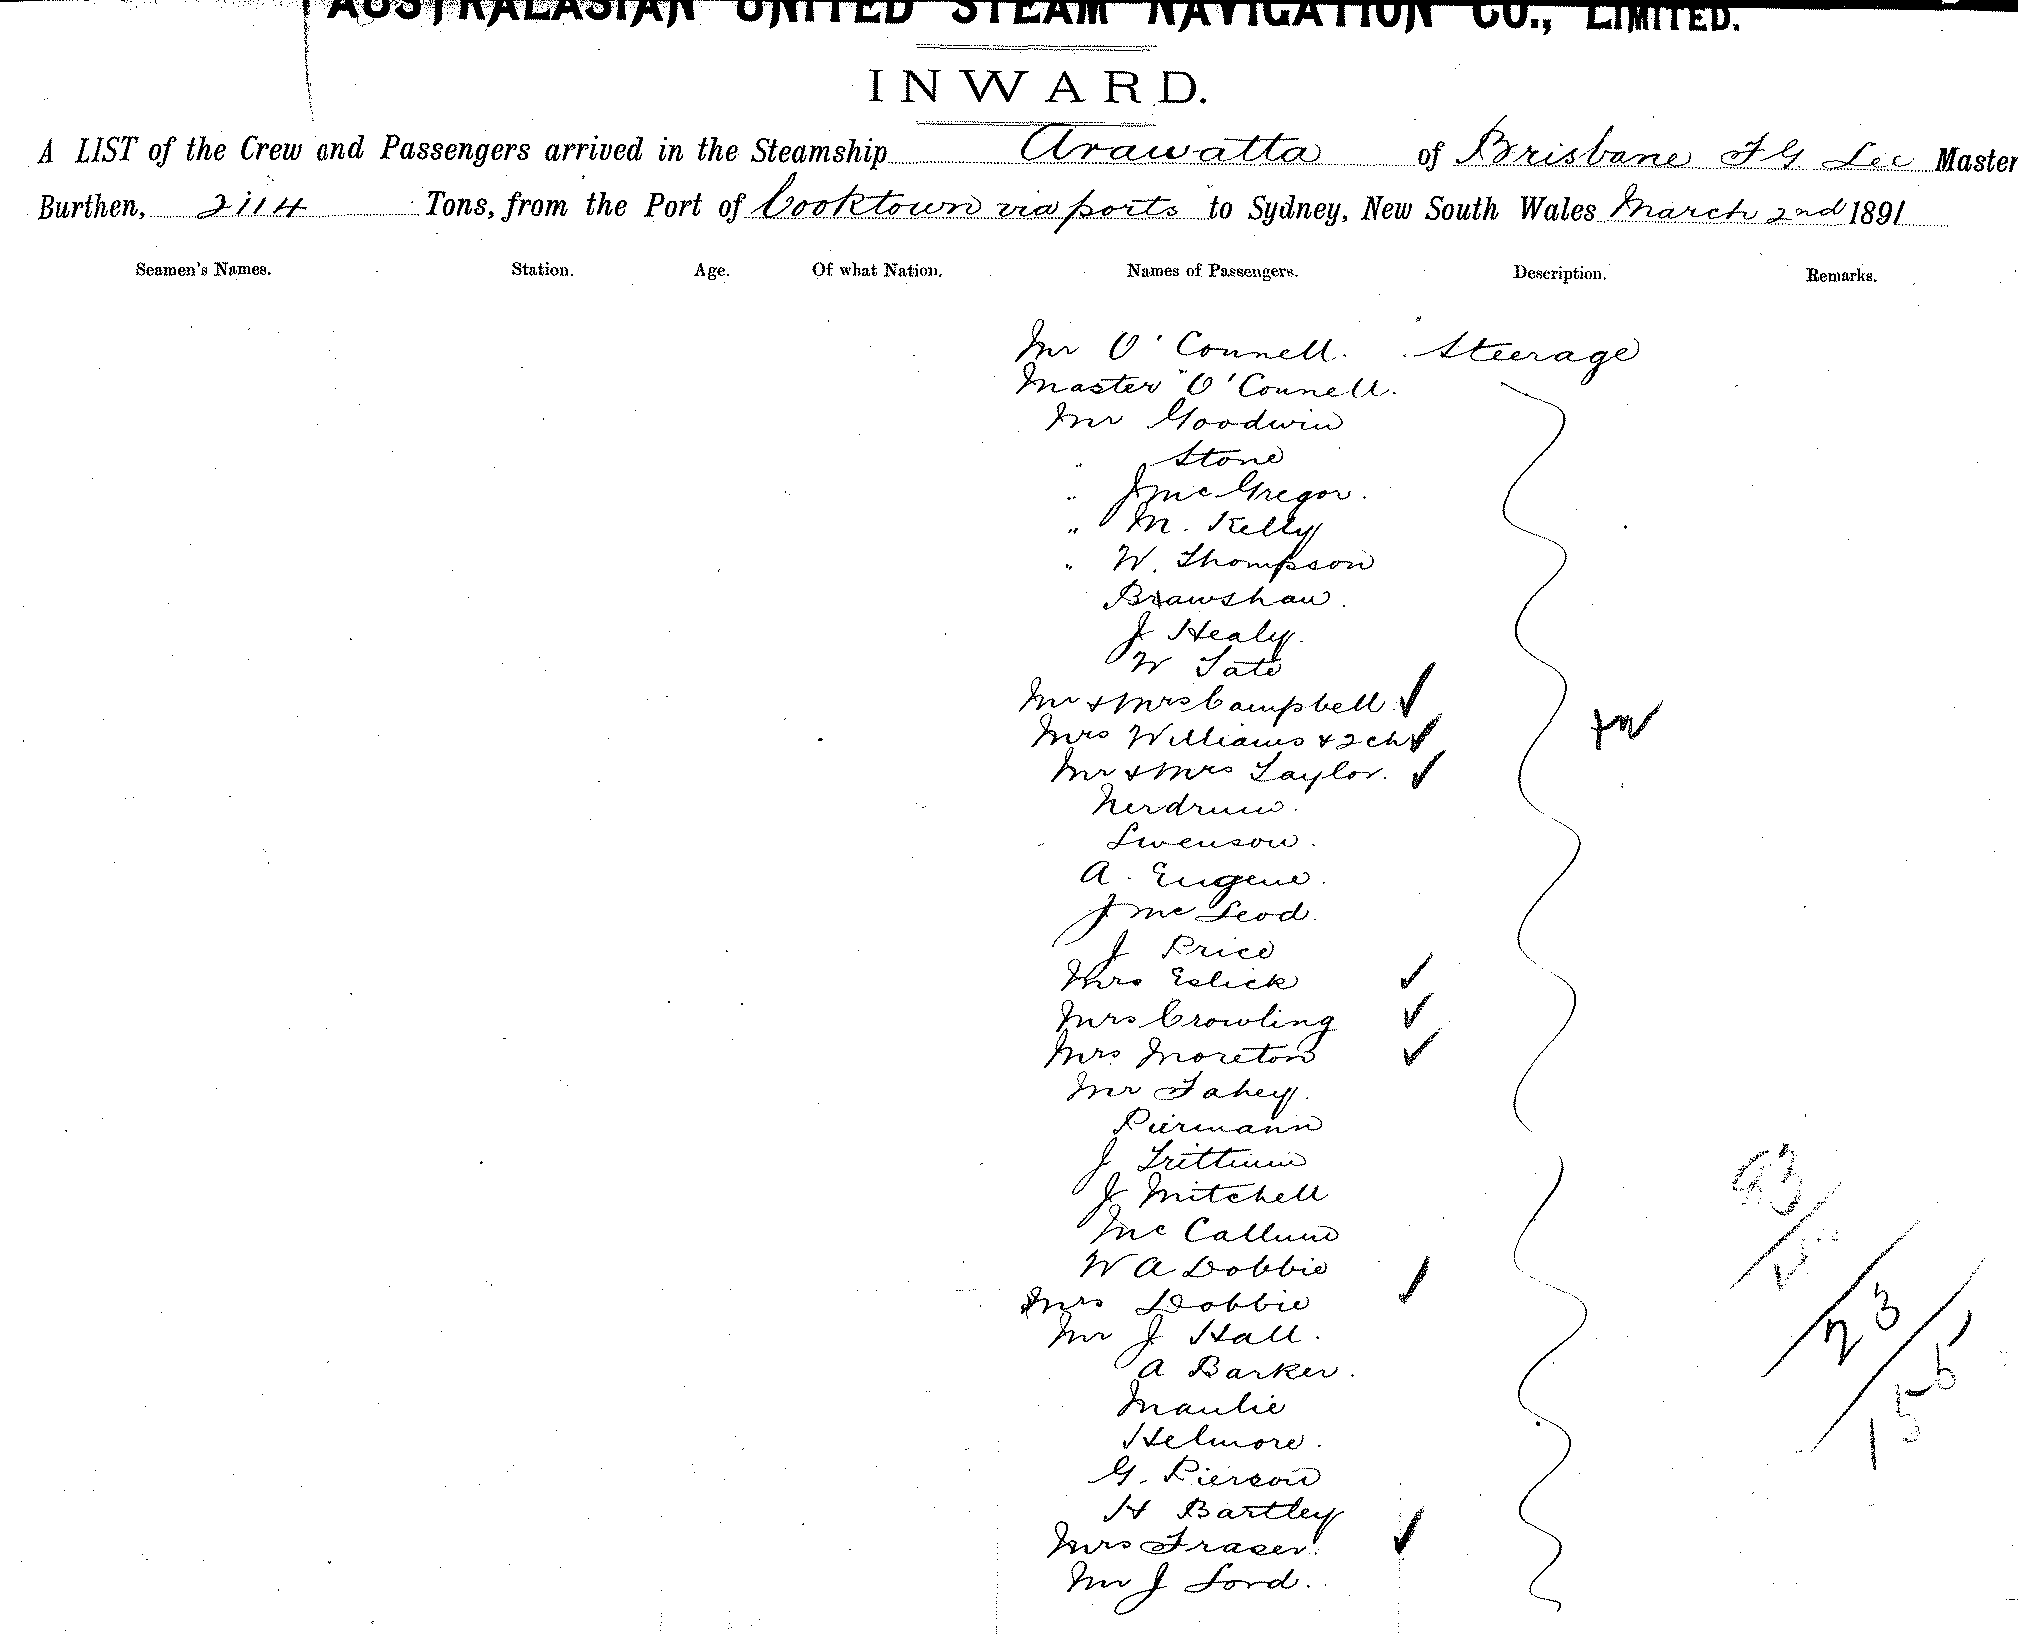 AUSTRALASIAN UNITED STEAM NAVIGATION CO., LIMITED.
INWARD.
A LIST of the Crew and Passengers arrived in the Steamship Arawatta of Brisbane F G Lee Master
Burthen, 2114 Tons, from the Port of Cooktown via ports to Sydney, New South Wales March 2nd 1891
Seamen's Names. Station. Age. Of what Nation. Names of Passengers. Description. Remarks.
Mr O'Connell. Steerage
Master O'Connell.
Mr Goodwin
" Stone
" J McGregor.
" M. Kelly
" W. Thompson
Brawshaw.
J Healy.
W Tate
Mr & Mrs Campbell ✓
Mrs Williams & 2 ch ✓
Mr & Mrs Taylor. ✓
Nerdrum.
Swenson.
A. Eugene.
J McLeod.
J Price
Mrs Eslick ✓
Mrs Crowling ✓
Mrs Moreton ✓
Mr Fahey.
Piermann
J Trittum
J Mitchell
McCallum
W A Dobbie
Mrs Dobbie ✓
Mr J Hall.
A Barker.
Maulie
Helmore.
G. Pierson
H Bartley
Mrs Fraser. ✓
Mr J Lord.
93
23
156